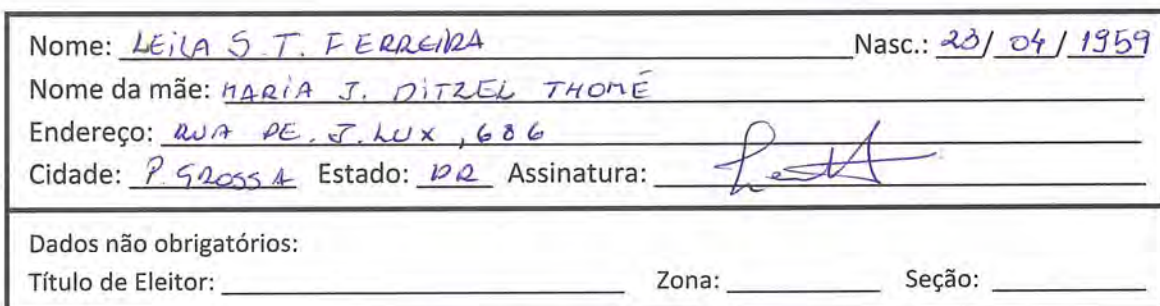 Nome: LEILA S. T. FERREIRA Nasc.: 23/04/1959
Nome da mãe: MARIA J. DITZEL THOMÉ
Endereço: RUA PE. J. LUX, 686
Cidade: P. GROSSA Estado: PR Assinatura:
Dados não obrigatórios:
Título de Eleitor: Zona: Seção: